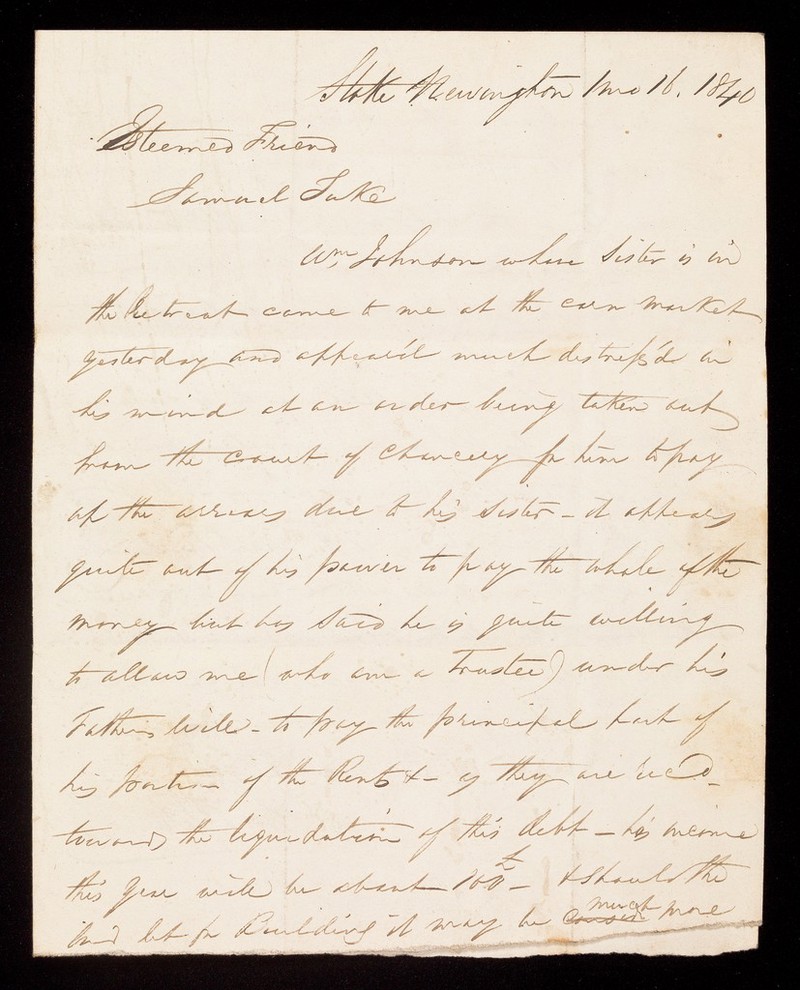 Stoke Newington 1mo 16. 1840
Esteemed Friend
Samuel Tuke
Wm, Johnson whose Sister is in
the Retreat came to me at the corn market
yesterday and appear'd much distress'd in
his mind at an order being taken out
from the court of Chancery for him to pay
up the arrears due to his sister - it appears
quite out of his power to pay the whole of the
money but has said he is quite willing
to allow me (who am a Trustee) under his
Fathers Will - to pay the principal part of
his portion of the Rents &- as they are rec'd -
towards the liquidation of this debt - his income
this year will be about 100£ - & should the
land let for Building it may be much more